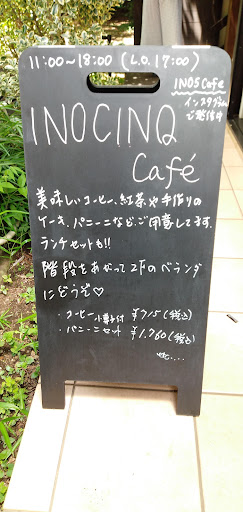 11:00〜18:00 (L.O. 17:00)
INO5 Cafe
インスタグラム
ご覧下さい
INOCINQ
Café
美味しいコーヒー、紅茶や手作りの
ケーキ、パニーニなど、ご用意してます。
ランチセットも!!
階段をあがって2Fのベランダ
にどうぞ♡
・コーヒー小菓子付 ¥715(税込)
・パニーニセット ¥1,760(税込)
etc....